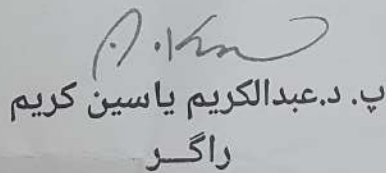 پ. د.عبدالكريم ياسين كريم
راگـــر